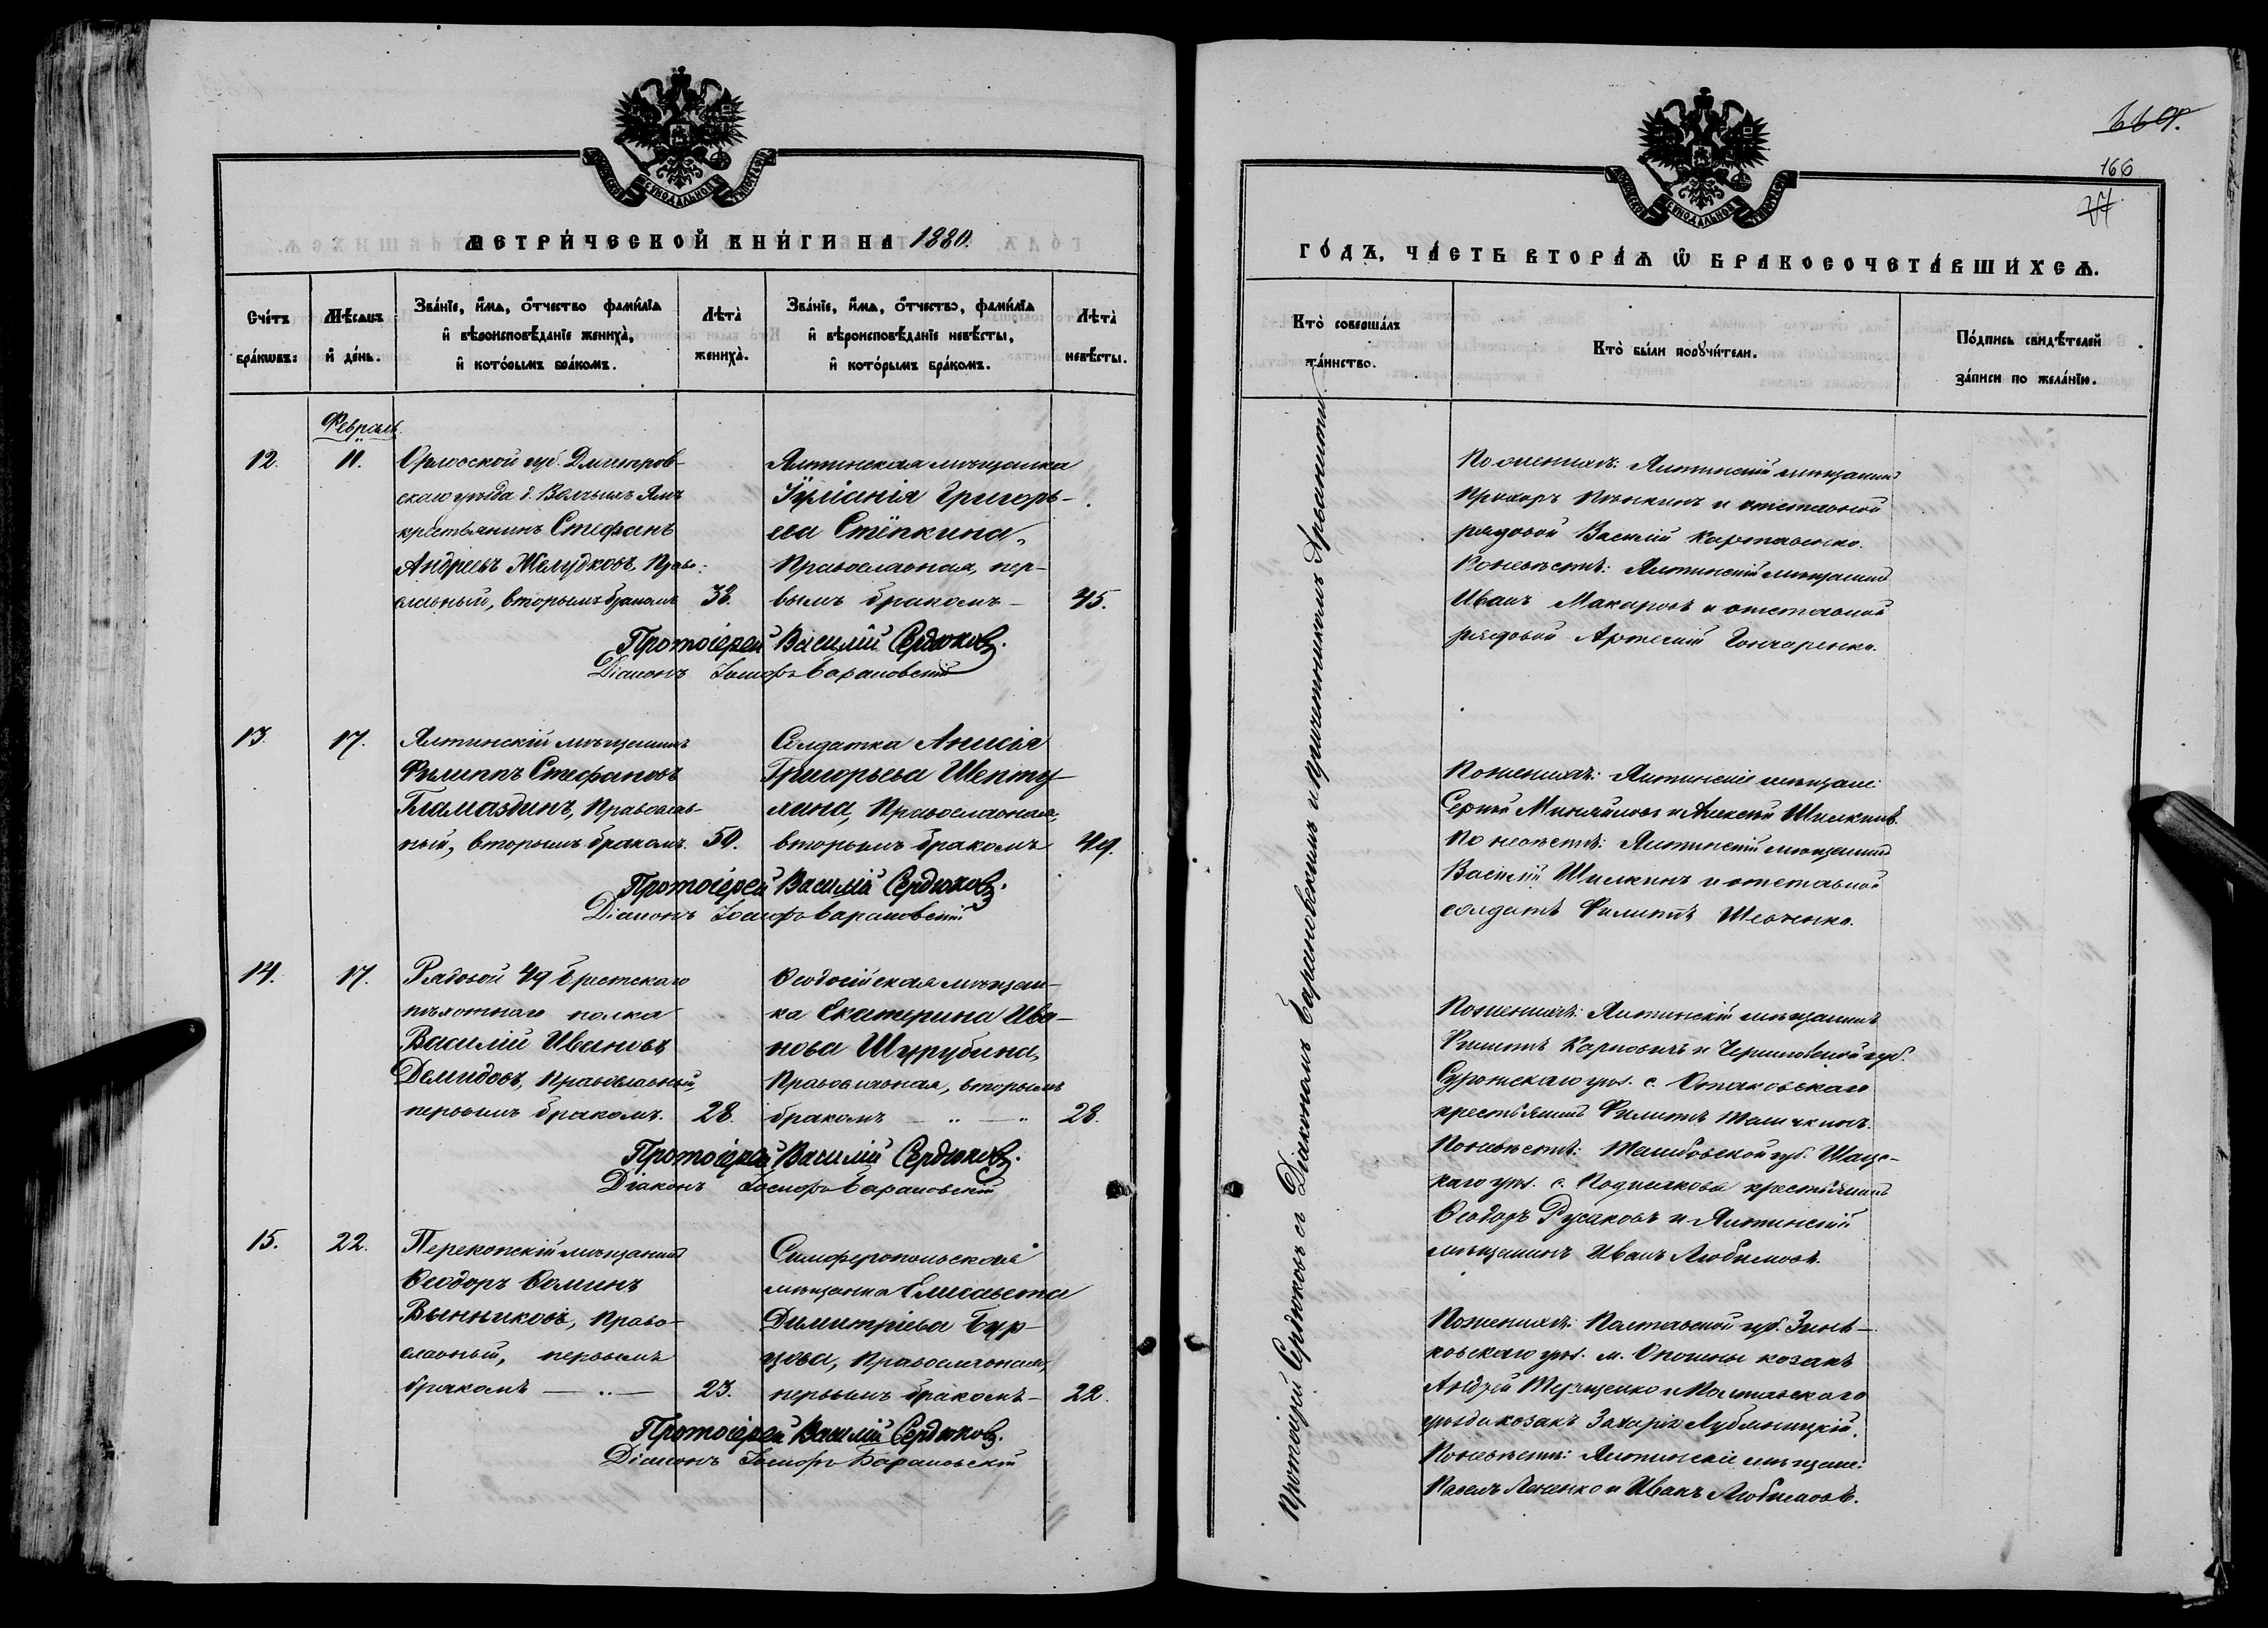 МЕТРИ́ЧЕСКОЙ КНИ́ГИ НА 1880.
Сче́тъ бра́кωвъ:
Мѣ́сѧцъ и҆ де́нь.
Зва́нїе, и҆́мѧ, ѻ҆́тчество фами́лїѧ
и҆ вѣроисповѣ́данїе жениха̀,
и҆ кото́рымъ бра́комъ.
Лѣта̀ жениха̀.
Зва́нїе, и҆́мѧ, ѻ҆́тчество, фами́лїѧ
и҆ вѣроисповѣ́данїе невѣ́сты,
и҆ кото́рымъ бра́комъ.
Лѣта̀ невѣ́сты.
Февраль
12.
11.
Орловской губ. Дмитров-
скаго уѣзда д. Волчьихъ Ямъ
крестьянинъ Стефанъ
Андреевъ Желудковъ, Право-
славный, вторымъ бракомъ
38.
Ялтинская мѣщанка
Іуліанія Григорь-
ева Стёпкина,
Православная, пер-
вымъ бракомъ —
45.
Протоіерей Василій Сердюковъ.
Діаконъ Іосифъ Барановскій
13.
17.
Ялтинскій мѣщанинъ
Филиппъ Стефановъ
Гламаздинъ, Православ-
ный, вторымъ бракомъ.
50.
Солдатка Анисія
Григорьева Шепту-
лина, Православная,
вторымъ бракомъ
49.
Протоіерей Василій Сердюковъ.
Діаконъ Іосифъ Барановскій
14.
17.
Рядовой 49 Брестскаго
пѣхотнаго полка
Василій Ивановъ
Демидовъ, Православный,
первымъ бракомъ.
28.
Ѳеодосійская мѣщан-
ка Екатерина Ива-
нова Шурубина,
Православная, вторымъ
бракомъ — " — "
28.
Протоіерей Василій Сердюковъ.
Діаконъ Іосифъ Барановскій
15.
22.
Перекопскій мѣщанинъ
Ѳеодоръ Ѳоминъ
Винниковъ, Право-
славный, первымъ
бракомъ — " —
23.
Симферопольская
мѣщанка Елисавета
Димитріева Бур-
цова, Православная,
первымъ бракомъ —
22.
Протоіерей Василій Сердюковъ.
Діаконъ Іосифъ Барановскій
166
ГО́ДЪ, ЧА́СТЬ ВТОРА́Ѧ Ѽ БРАКОСОЧЕТА́ВШИХСѦ.
Кто̀ соверша́лъ та́инство.
Кто̀ бы́ли порꙋчи́тели.
По́дпись свидѣ́телей за́писи по жела́нїю.
Протоіерей Сердюковъ съ Діакономъ Барановскимъ и причетникомъ
По женихѣ: Ялтинскій мѣщанинъ
Прохоръ и отставной
рядовой Василій Картавенко.
По невѣстѣ: Ялтинскій мѣщанинъ
Иванъ Макаровъ и отставной
рядовой Артемій Гончаренко.
По женихѣ: Ялтинскіе мѣщане:
Сергѣй Миняйловъ и Алексѣй Шилкинъ.
По невѣстѣ: Ялтинскій мѣщанинъ
Василій Шилкинъ и отставной
солдатъ Филиппъ Шевченко.
По женихѣ: Ялтинскій мѣщанинъ
Филиппъ Карповичъ и Черниговской губ.
Суражскаго уѣз. с.
крестьянинъ Филиппъ
По невѣстѣ: Тамбовской губ. Шац-
каго уѣз. с. крестьянинъ
Ѳеодоръ Русаковъ и Ялтинскій
мѣщанинъ Иванъ Любимовъ.
По женихѣ: Полтавской губ. Зинь-
ковскаго уѣз. м. Опошни козакъ
Андрей Терещенко и Полтавскаго
уѣзда козакъ Захарій
По невѣстѣ: Ялтинскіе мѣщане:
Павелъ и Иванъ Любимовъ.